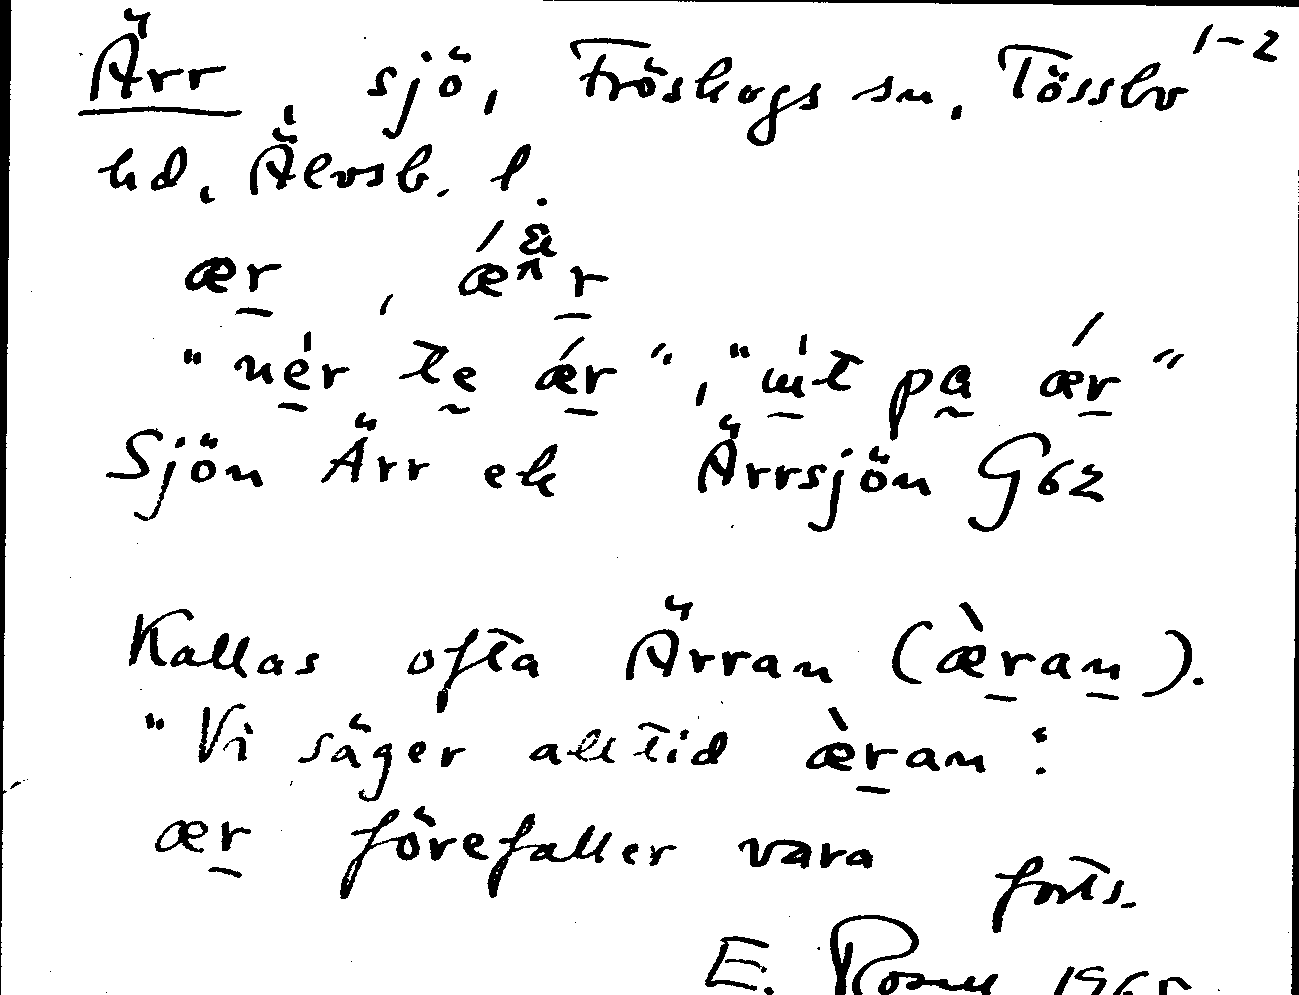 Ärr, sjö, Fröskogs sn, Tössbo 1-2
hd, Älvsb. l.
ær̲, ǽr̲
"ne̲r tḛ ǽr̲", "u̲t pa̰ ǽr̲"
Sjön Ärr el. Ärrsjön G62
Kallas ofta Ärran (æ̀r̲an̲).
"Vi säger alltid æ̀r̲an":
ær̲ förefaller vara
forts.
E. 1965